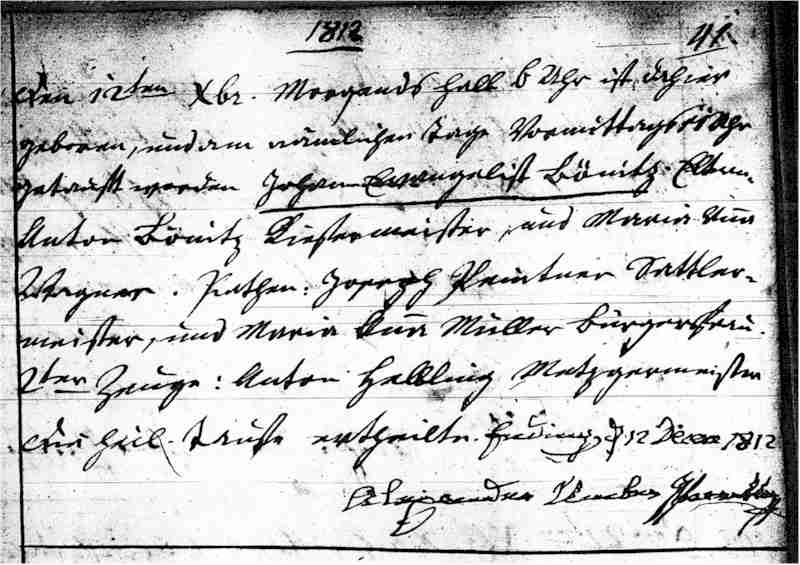 1812
41.
Den 12ten Xbr. Morgends halb 6 Uhr ist dahier
geboren, und am nämlichen Tage Vormittags 11 Uhr
getauft worden Johann Evangelist Bönitz. Eltern.
Anton Bönitz Küfermeister, und Maria Anna
Wagner. Pathen: Joseph Sattler-
meister, und Maria Anna Müller Bürgersfrau.
2ter Zeuge: Anton Helbling Metzgermeister
Die heil. Taufe ertheilte. Endingen d 12 Decem 1812
Alexander